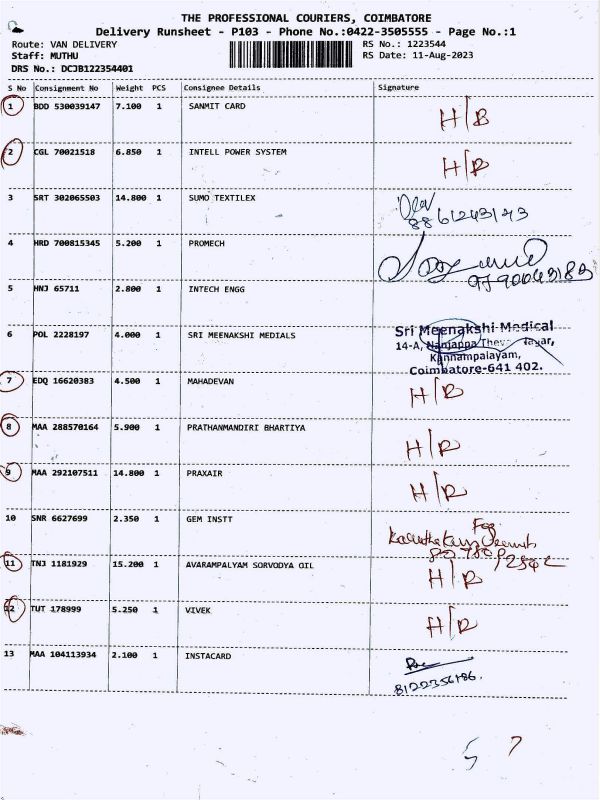 THE PROFESSIONAL COURIERS, COIMBATORE
Delivery Runsheet - P103 - Phone No.:0422-3505555 - Page No.:1
Route: VAN DELIVERY RS No.: 1223544
Staff: MUTHU RS Date: 11-Aug-2023
DRS No.: DCJB122354401
S No Consignment No Weight PCS Consignee Details Signature
1 BDD 530039147 7.100 1 SANMIT CARD H/B
2 CGL 70021518 6.850 1 INTELL POWER SYSTEM H/R
3 SRT 302065503 14.800 1 SUMO TEXTILEX
4 HRD 700815345 5.200 1 PROMECH
5 HNJ 65711 2.800 1 INTECH ENGG
6 POL 2228197 4.000 1 SRI MEENAKSHI MEDIALS
Sri Meenakshi Medical
14-A, Nanjappa
Kannampalayam,
Coimbatore-641 402.
7 EDQ 16620383 4.500 1 MAHADEVAN H/R
8 MAA 288570164 5.900 1 PRATHANMANDIRI BHARTIYA H/R
9 MAA 292107511 14.800 1 PRAXAIR H/R
10 SNR 6627699 2.350 1 GEM INSTT
For
11 TNJ 1181929 15.200 1 AVARAMPALYAM SORVODYA OIL H/R
12 TUT 178999 5.250 1 VIVEK H/R
13 MAA 104113934 2.100 1 INSTACARD
8122356186.
5 7